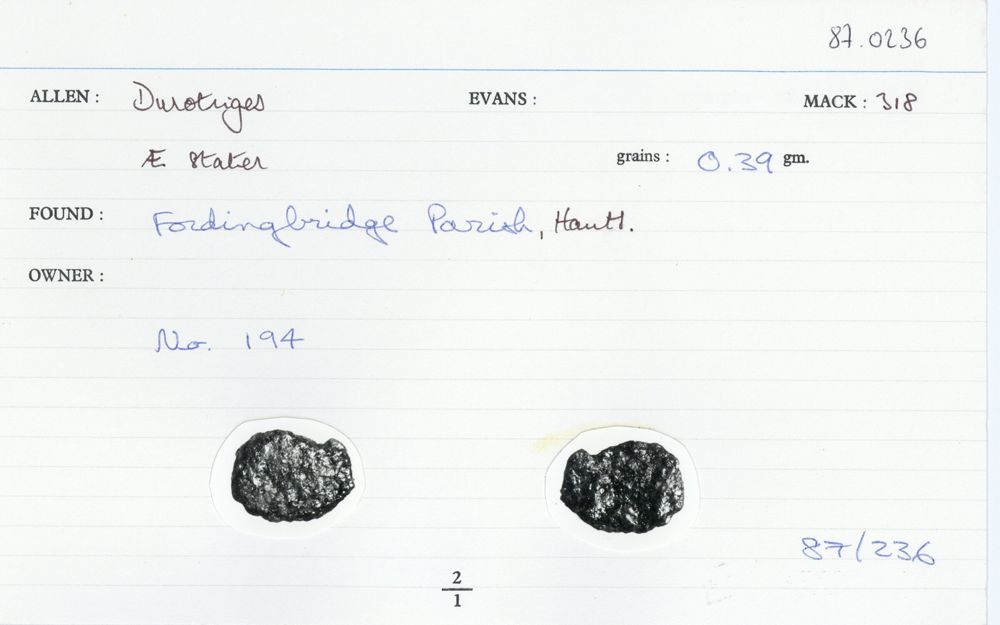 87.0236
ALLEN : Durotriges EVANS : MACK : 318
Æ Stater grains : 0.39 gm.
FOUND : Fordingbridge Parish, Hants.
OWNER :
No. 194
87/236
2
1